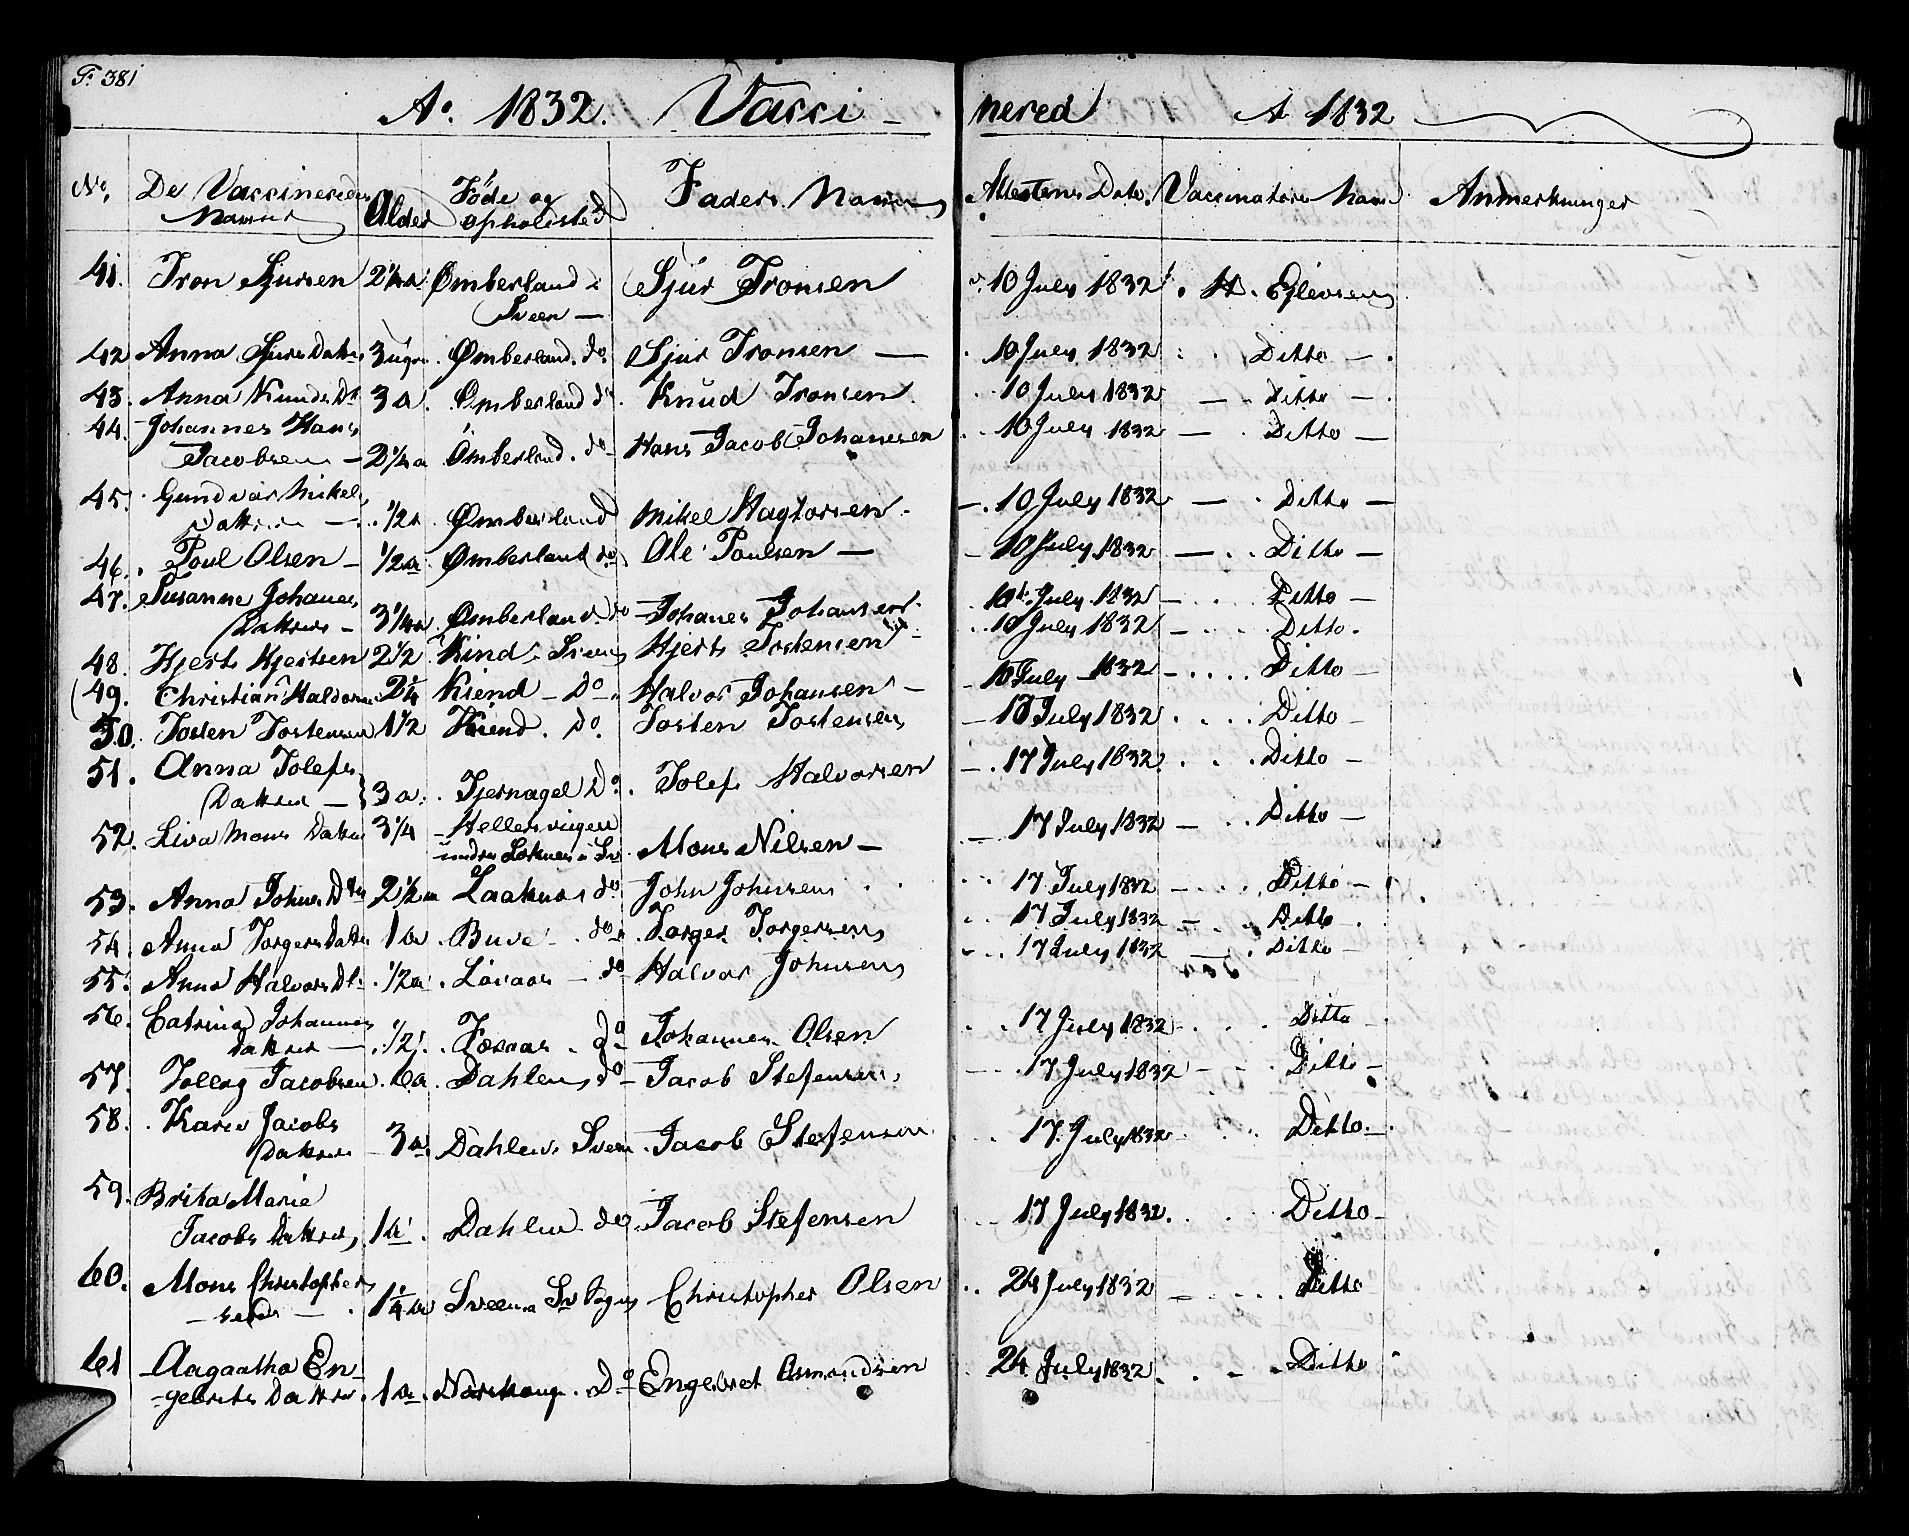 F. 381
Ao. 1832. Vacci- nered A 1832
No. De Vaccineredes Navne Alder Føde og opholdsted Faders Navn Attestens Dato. Vaccinatørs Navn Anmerkninger
41. Tron Sjursen 2 1/4 a Ømberland i Sveen — Sjur Tronsen 10 July 1832 H. Ejlevsen
42 Anna Sjurs Datter 3 uger Ømberland. do. Sjur Tronsen — 10 July 1832 Ditto —
43. Anna Knuds Dt 3 a. Ømberland do. Knud Tronsen. 10 July 1832 — Ditto —
44. Johannes Hans
Jacobsen — 2 1/4 a Ømberland. do Hans Jacob Johanesen 10 July 1832 — Ditto —
45. Gundvär Mikels
Datter — 1/2 a Ømberland Mikel Hagtorsen — 10 July 1832 — Ditto —
46. Poul Olsen — 1/2 a Ømberland do. Ole Poulsen — 10 July 1832 — Ditto —
47. Susanne Johanes
Datter — 3 1/4 a Ømberland do Johanes Johansen 10 July 1832 — Ditto —
48. Hjerts Hjertsen 2 1/2 Kind Hjerts Tostensen 10 July 1832 — Ditto.
49. Christian Haldorsen 2 1/4 Kiend — Do Halvor Johansen — 10 July 1832 Ditto —
50. Tosten Tostensen 1 1/2 Kiend. Do. Tosten Tostensen — 10 July 1832 Ditto —
51. Anna Tolefs
Datter — 3 a. Tjernagel Do. Tolef Halvorsen 17 July 1832 Ditto —
52. Siva Mons Datter 3 1/4 Mons Nilsen — 17 July 1832 — Ditto —
53. Anna Johns Dtr 2 1/2 a do John Johnsen 17 July 1832 Ditto —
54. Anna Torgers Datter 1 a Buve do Torger Torgersen 17 July 1832 — Ditto
55. Anna Halvors Dt. 1/2 a Halvor Johnsen 17 July 1832 — Ditto —
56. Catrina Johannes
Datter — 1/2 do Johannes Olsen 17 July 1832 Ditto —
57. Tollag Jacobsen 6 a Dahlen do Jacob Stefensen 17 July 1832 Ditto —
58. Karen Jacobs
Datter — 3 a. Dahlen Sveen Jacob Stefenson 17. July 1832 Ditto. —
59. Brita Marie
Jacobs Datter 1 a. Dahlen do Jacob Stefensen 17 July 1832. Ditto —
60. Mons Christopher
— sen — 1 1/4 a Sveen Christopher Olsen 24 July 1832 — Ditto
61 Aagaatha En-
gebrets Datter 1 a. Do Engebret Asmundsen 24 July 1832 Ditto